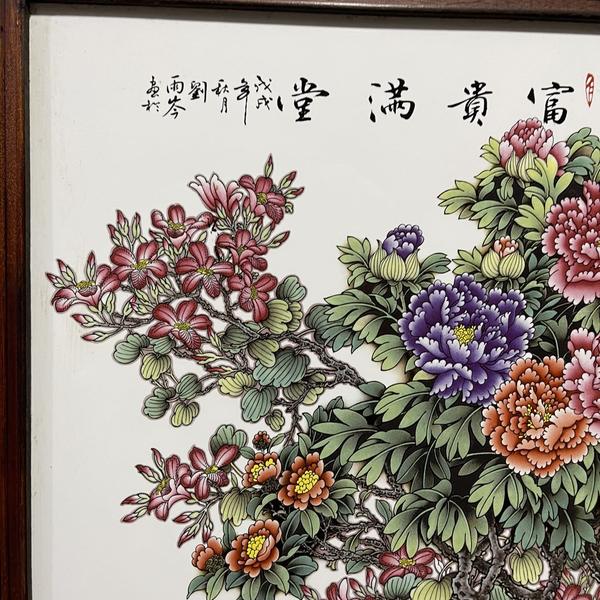 富貴滿堂
戊戌
年
秋月
劉
雨岑
畫於